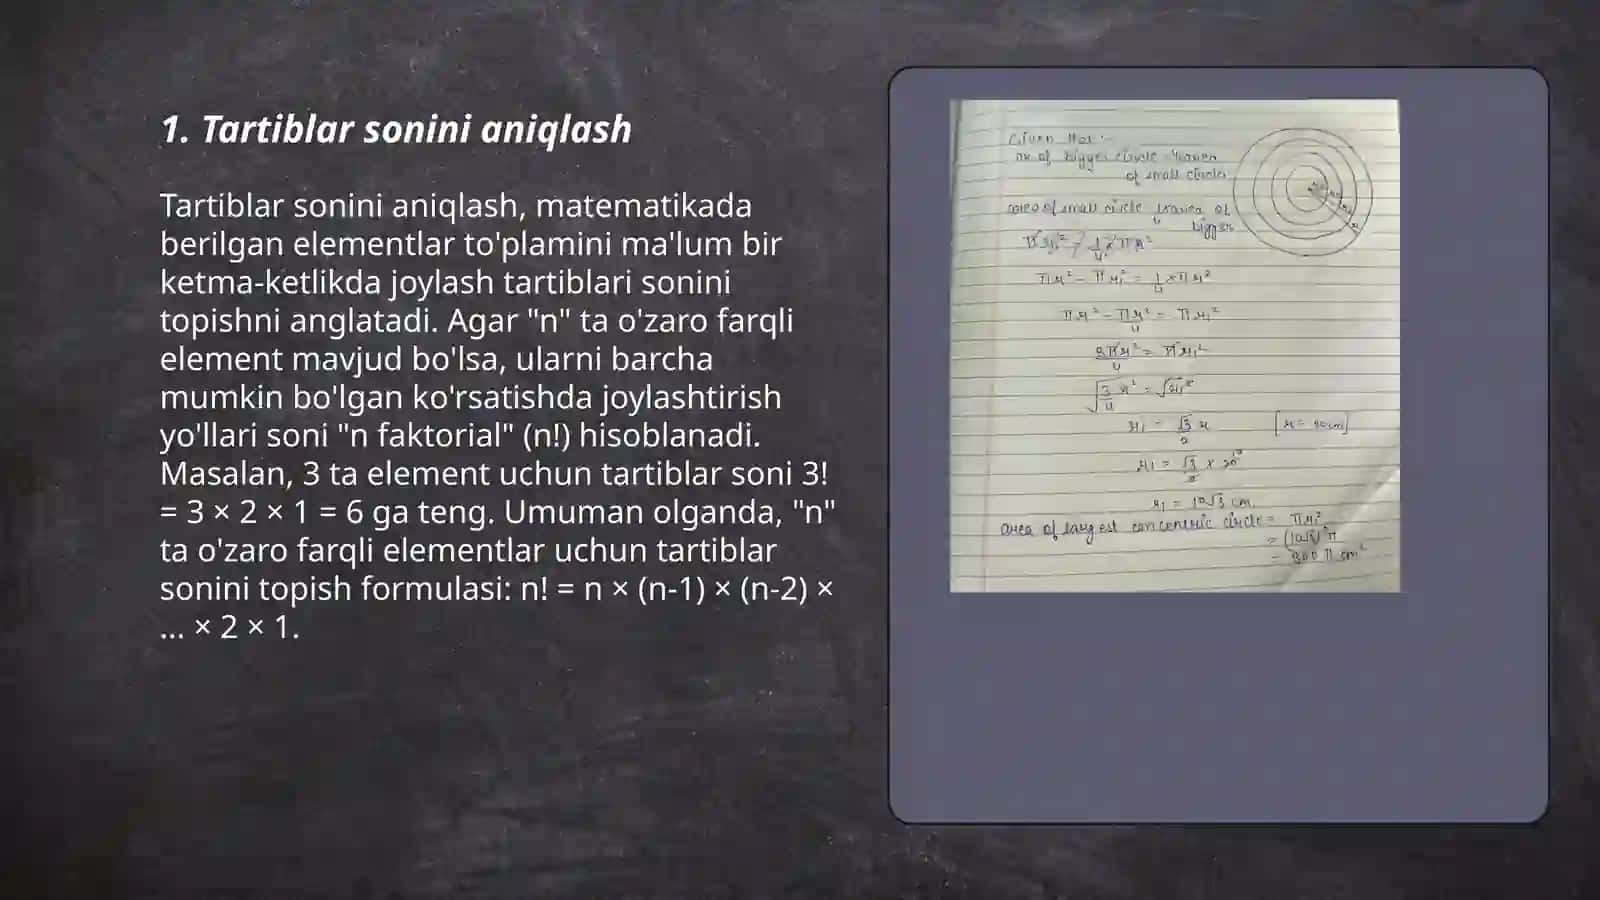 1. Tartiblar sonini aniqlash
Tartiblar sonini aniqlash, matematikada
berilgan elementlar to'plamini ma'lum bir
ketma-ketlikda joylash tartiblari sonini
topishni anglatadi. Agar "n" ta o'zaro farqli
element mavjud bo'lsa, ularni barcha
mumkin bo'lgan ko'rsatishda joylashtirish
yo'llari soni "n faktorial" (n!) hisoblanadi.
Masalan, 3 ta element uchun tartiblar soni 3!
= 3 × 2 × 1 = 6 ga teng. Umuman olganda, "n"
ta o'zaro farqli elementlar uchun tartiblar
sonini topish formulasi: n! = n × (n-1) × (n-2) ×
... × 2 × 1.
Given
of bigger circle
of small circle
area of small circle
bigger
πr² - πr₁² = 1/4 × πr²
πr² - πr²/4 = πr₁²
r₁ = √3/2 r
r₁ = 10√3 cm
area of largest concentric circle = πr₁²
= (10√3)² π
= 300 π cm²